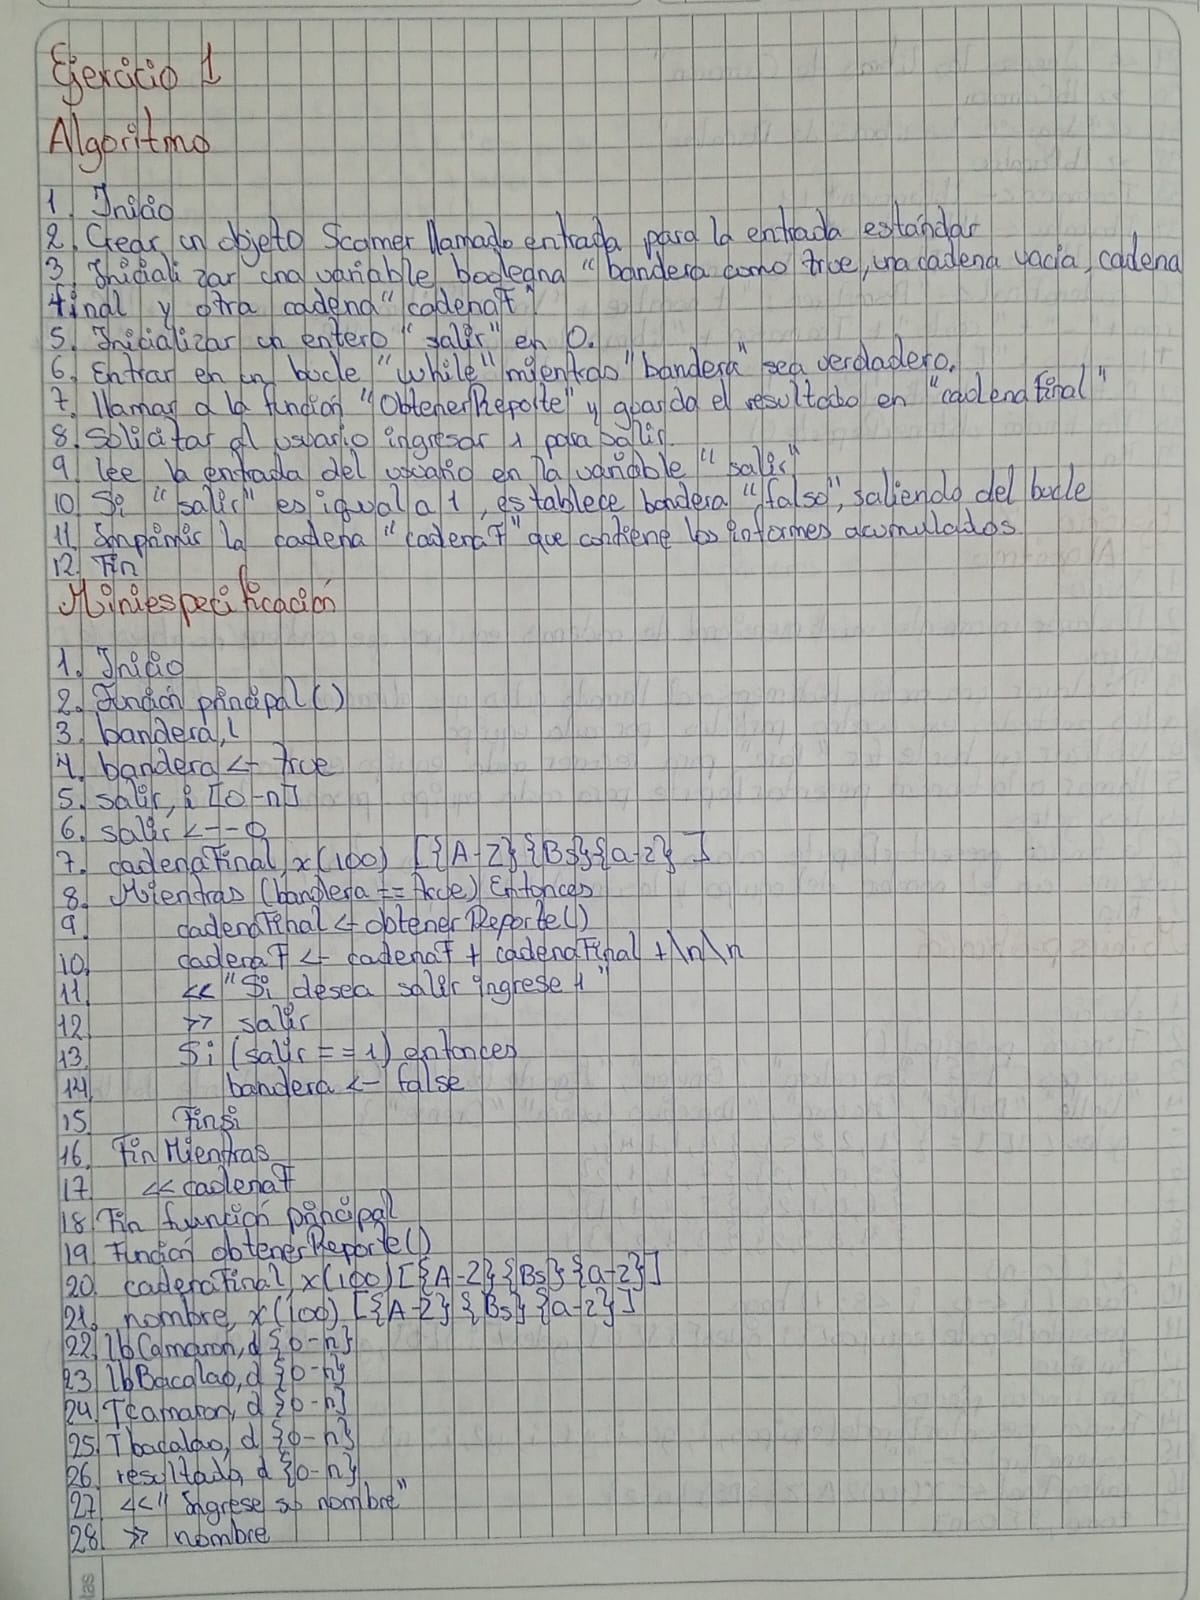 Ejercicio 1
Algoritmo
1. Inicio
2. Crear un objeto Scanner llamado entrada para la entrada estándar
3. Inicializar una variable booleana "bandera como true, una cadena vacía, cadena
final y otra cadena "cadenaF"
5. Inicializar un entero "salir" en 0.
6. Entrar en un bucle "while" mientras "bandera" sea verdadero.
7. llamar a la función "ObtenerReporte" y guarda el resultado en "cadenaFinal"
8. Solicitar al usuario ingresar 1 para salir.
9. lee la entrada del usuario en la variable "salir"
10. Si "salir" es igual a 1, establece bandera "falso", saliendo del bucle
11. Imprimir la cadena "cadenaF" que contiene los informes acumulados
12. Fin
Miniespecificación
1. Inicio
2. Función principal()
3. bandera, l
4. bandera <- true
5. salir, i [0-n]
6. salir <-- 0
7. cadenaFinal, x(100) [{A-Z}{Bs}{a-z}]
8. Mientras (bandera == true) Entonces
9. cadenaFinal <- obtenerReporte()
10. cadenaF <- cadenaF + cadenaFinal + \n\n
11. << "Si desea salir ingrese 1"
12. >> salir
13. Si (salir == 1) entonces
14. bandera <- false
15. Finsi
16. Fin Mientras
17. << cadenaF
18. Fin función principal
19. Función obtenerReporte()
20. cadenaFinal, x(100) [{A-Z}{Bs}{a-z}]
21. nombre, x(100) [{A-Z}{Bs}{a-z}]
22. lbCamaron, d {0-n}
23. lbBacalao, d {0-n}
24. Tcamaron, d {0-n]
25. Tbacalao, d {0-n}
26. resultado, d {0-n}
27. << "Ingrese su nombre"
28. >> nombre